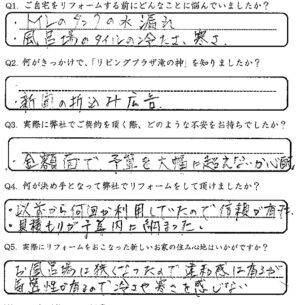 Q1. ご自宅をリフォームする前にどんなことに悩んでいましたか?
・トイレのタンクの水漏れ
・風呂場のタイルの冷たさ、寒さ
Q2. 何がきっかけで、「リビングプラザ滝の神」を知りましたか?
・新聞の折込み広告
Q3. 実際に弊社でご契約を頂く際、どのような不安をお持ちでしたか?
・金額面で予算を大幅に超えないか心配
Q4. 何が決め手となって弊社でリフォームをして頂けましたか?
・以前から何回か利用していたので信頼が有る
・見積もりが予算内に納まった
Q5. 実際にリフォームをおこなった新しいお家の住み心地はいかがですか?
お風呂場は狭くなったので違和感は有るが
性が有るので冷さや寒さを感じない